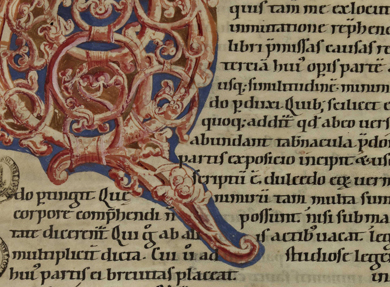 quis tam me exlocut
immutatione rephen
libri p̄missas causas re
tereia huiꝰ opis parte
usq; similitudinē. minim
do ꝑduxi. Quib; scilicet
quoq; addit̄ qđ abeo uers
abundant tabnacula p̄do
partis expositio incipit
scriptū ē. dulcedo ei uerm
do ꝑtingit. Que nimirū tam multa sunt
corpore comp̄hendi n possunt. nisi subma
tat dicerent. Qui g ab ali is actib; uacat. leg
multiplicit̄ dicta. Cui ū ad studiose legat
huiꝰ partis ei breuitas placeat. in